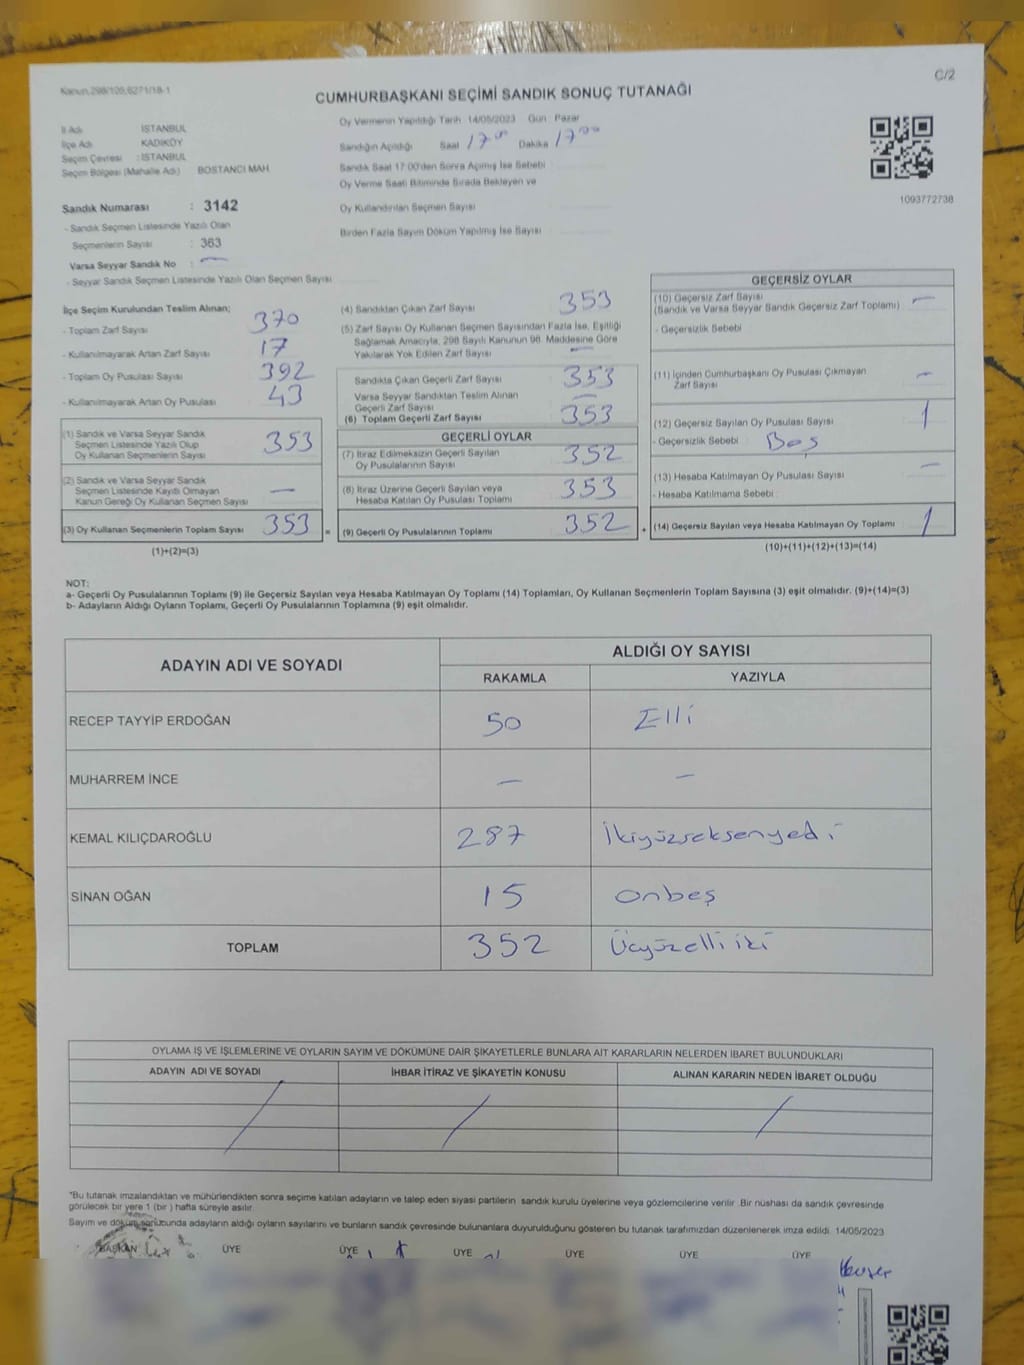 Kanun.298/105,6271/18-1
C/2
CUMHURBAŞKANI SEÇİMİ SANDIK SONUÇ TUTANAĞI
İl Adı İSTANBUL
İlçe Adı KADIKÖY
Seçim Çevresi : İSTANBUL
Seçim Bölgesi (Mahalle Adı) BOSTANCI MAH.
Oy Vermenin Yapıldığı Tarih 14/05/2023 Gün: Pazar
Sandığın Açıldığı Saat 17 00 Dakika 17 00
Sandık Saat 17:00'den Sonra Açılmış İse Sebebi
Oy Verme Saati Bitiminde Sırada Bekleyen ve
Oy Kullandırılan Seçmen Sayısı
Birden Fazla Sayım Döküm Yapılmış İse Sayısı
1093772738
Sandık Numarası : 3142
- Sandık Seçmen Listesinde Yazılı Olan
Seçmenlerin Sayısı : 363
Varsa Seyyar Sandık No : —
- Seyyar Sandık Seçmen Listesinde Yazılı Olan Seçmen Sayısı
İlçe Seçim Kurulundan Teslim Alınan;
- Toplam Zarf Sayısı 370
- Kullanılmayarak Artan Zarf Sayısı 17
- Toplam Oy Pusulası Sayısı 392
- Kullanılmayarak Artan Oy Pusulası 43
(1) Sandık ve Varsa Seyyar Sandık
Seçmen Listesinde Yazılı Olup
Oy Kullanan Seçmenlerin Sayısı 353
(2) Sandık ve Varsa Seyyar Sandık
Seçmen Listesinde Kayıtlı Olmayan
Kanun Gereği Oy Kullanan Seçmen Sayısı —
(3) Oy Kullanan Seçmenlerin Toplam Sayısı 353 =
(1)+(2)=(3)
(4) Sandıktan Çıkan Zarf Sayısı 353
(5) Zarf Sayısı Oy Kullanan Seçmen Sayısından Fazla İse, Eşitliği
Sağlamak Amacıyla, 298 Sayılı Kanunun 98. Maddesine Göre
Yakılarak Yok Edilen Zarf Sayısı —
Sandıkta Çıkan Geçerli Zarf Sayısı 353
Varsa Seyyar Sandıktan Teslim Alınan
Geçerli Zarf Sayısı —
(6) Toplam Geçerli Zarf Sayısı 353
GEÇERLİ OYLAR
(7) İtiraz Edilmeksizin Geçerli Sayılan
Oy Pusulalarının Sayısı 352
(8) İtiraz Üzerine Geçerli Sayılan veya
Hesaba Katılan Oy Pusulası Toplamı 353
(9) Geçerli Oy Pusulalarının Toplamı 352 +
GEÇERSİZ OYLAR
(10) Geçersiz Zarf Sayısı
(Sandık ve Varsa Seyyar Sandık Geçersiz Zarf Toplamı) —
- Geçersizlik Sebebi
(11) İçinden Cumhurbaşkanı Oy Pusulası Çıkmayan
Zarf Sayısı —
(12) Geçersiz Sayılan Oy Pusulası Sayısı 1
- Geçersizlik Sebebi Boş
(13) Hesaba Katılmayan Oy Pusulası Sayısı —
- Hesaba Katılmama Sebebi
(14) Geçersiz Sayılan veya Hesaba Katılmayan Oy Toplamı 1
(10)+(11)+(12)+(13)=(14)
NOT:
a- Geçerli Oy Pusulalarının Toplamı (9) ile Geçersiz Sayılan veya Hesaba Katılmayan Oy Toplamı (14) Toplamları, Oy Kullanan Seçmenlerin Toplam Sayısına (3) eşit olmalıdır. (9)+(14)=(3)
b- Adayların Aldığı Oyların Toplamı, Geçerli Oy Pusulalarının Toplamına (9) eşit olmalıdır.
ADAYIN ADI VE SOYADI ALDIĞI OY SAYISI
RAKAMLA YAZIYLA
RECEP TAYYİP ERDOĞAN 50 Elli
MUHARREM İNCE — —
KEMAL KILIÇDAROĞLU 287 İkiyüzseksenyedi
SİNAN OĞAN 15 onbeş
TOPLAM 352 Üçyüzelli iki
OYLAMA İŞ VE İŞLEMLERİNE VE OYLARIN SAYIM VE DÖKÜMÜNE DAİR ŞİKAYETLERLE BUNLARA AİT KARARLARIN NELERDEN İBARET BULUNDUKLARI
ADAYIN ADI VE SOYADI İHBAR İTİRAZ VE ŞİKAYETİN KONUSU ALINAN KARARIN NEDEN İBARET OLDUĞU
*Bu tutanak imzalandıktan ve mühürlendikten sonra seçime katılan adayların ve talep eden siyasi partilerin sandık kurulu üyelerine veya gözlemcilerine verilir. Bir nüshası da sandık çevresinde
görülecek bir yere 1 (bir ) hafta süreyle asılır.
Sayım ve döküm sonucunda adayların aldığı oyların sayılarını ve bunların sandık çevresinde bulunanlara duyurulduğunu gösteren bu tutanak tarafımızdan düzenlenerek imza edildi. 14/05/2023
BAŞKAN ÜYE ÜYE ÜYE ÜYE ÜYE ÜYE